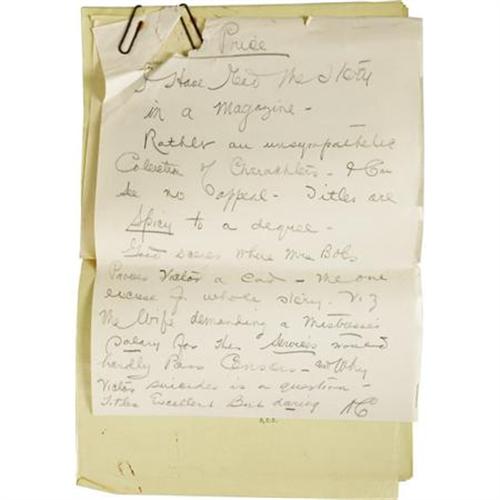 Price
I Have Read the Story
in a Magazine -
Rather an unsympathetic
Colection of Charachters - & Can
see no appeal - Titles are
Spicy to a degree -
scenes where Mrs Bobs
Proves Victor a Cad - the one
excuse for whole story. Viz
the Wife demanding a Mistresses
salary for the "Services would
hardly Pass Censors - and Why
Victor suicides is a question -
Titles Excellent But daring